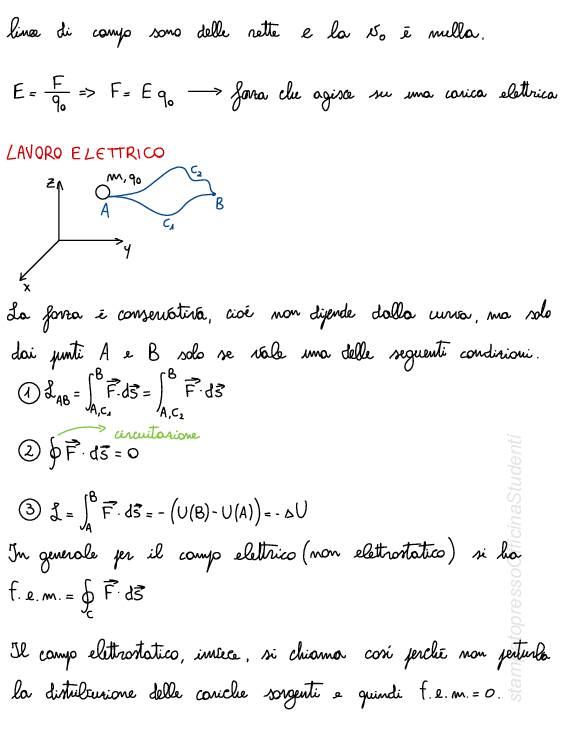 linee di campo sono delle rette e la v₀ è nulla.
E = F/q₀ => F = E q₀ → forza che agisce su una carica elettrica
LAVORO ELETTRICO
m, q₀
z
A
C₂
B
C₁
y
x
La forza è conservativa, cioè non dipende dalla curva, ma solo
dai punti A e B solo se vale una delle seguenti condizioni.
① L_AB = ∫_{A,C₁}^{B} F⃗·ds⃗ = ∫_{A,C₂}^{B} F⃗·ds⃗
circuitazione
② ∮ F⃗·ds⃗ = 0
③ L = ∫_A^B F⃗·ds⃗ = -(U(B)-U(A)) = -ΔU
In generale per il campo elettrico (non elettrostatico) si ha
f.e.m. = ∮_C F⃗·ds⃗
Il campo elettrostatico, invece, si chiama così perché non perturba
la distribuzione delle cariche sorgenti e quindi f.e.m. = 0.
stampatopressoOfficinaStudenti